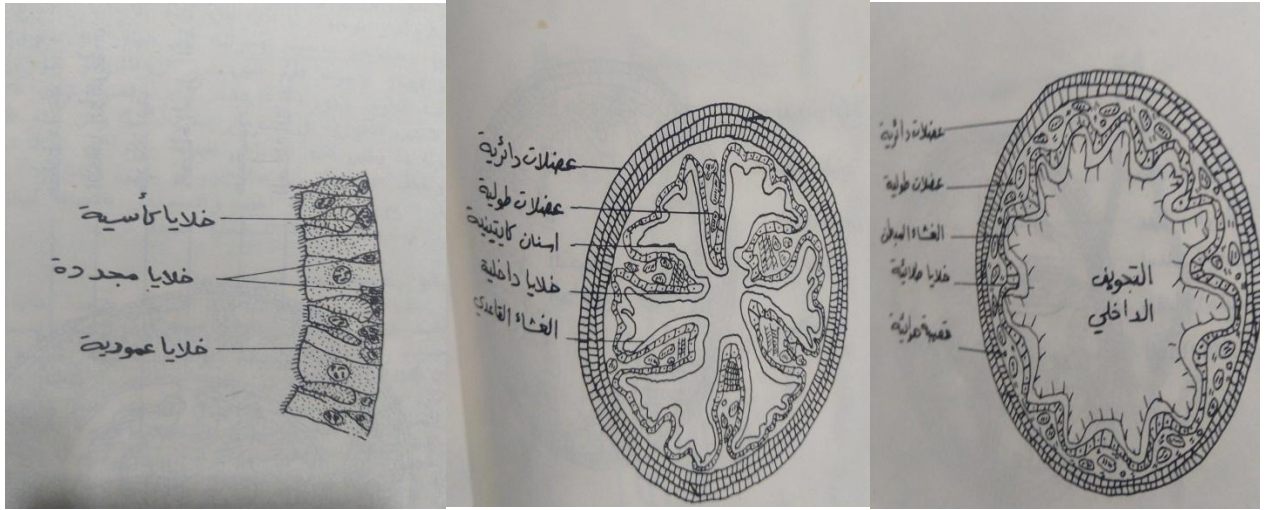 خلايا كأسية
خلايا مجددة
خلايا عمودية
عضلات دائرية
عضلات طولية
اسنان كايتينية
خلايا داخلية
الغشاء القاعدي
عضلات دائرية
عضلات طولية
الغشاء المبطن
خلايا طلائية
قصيبة هوائية
التجويف
الداخلي